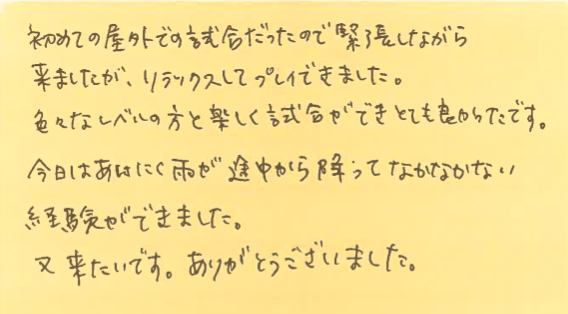 初めての屋外での試合だったので緊張しながら
来ましたが、リラックスしてプレイできました。
色々なレベルの方と楽しく試合ができとても良かったです。
今日はあいにく雨が途中から降ってなかなかない
経験ができました。
又来たいです。ありがとうございました。